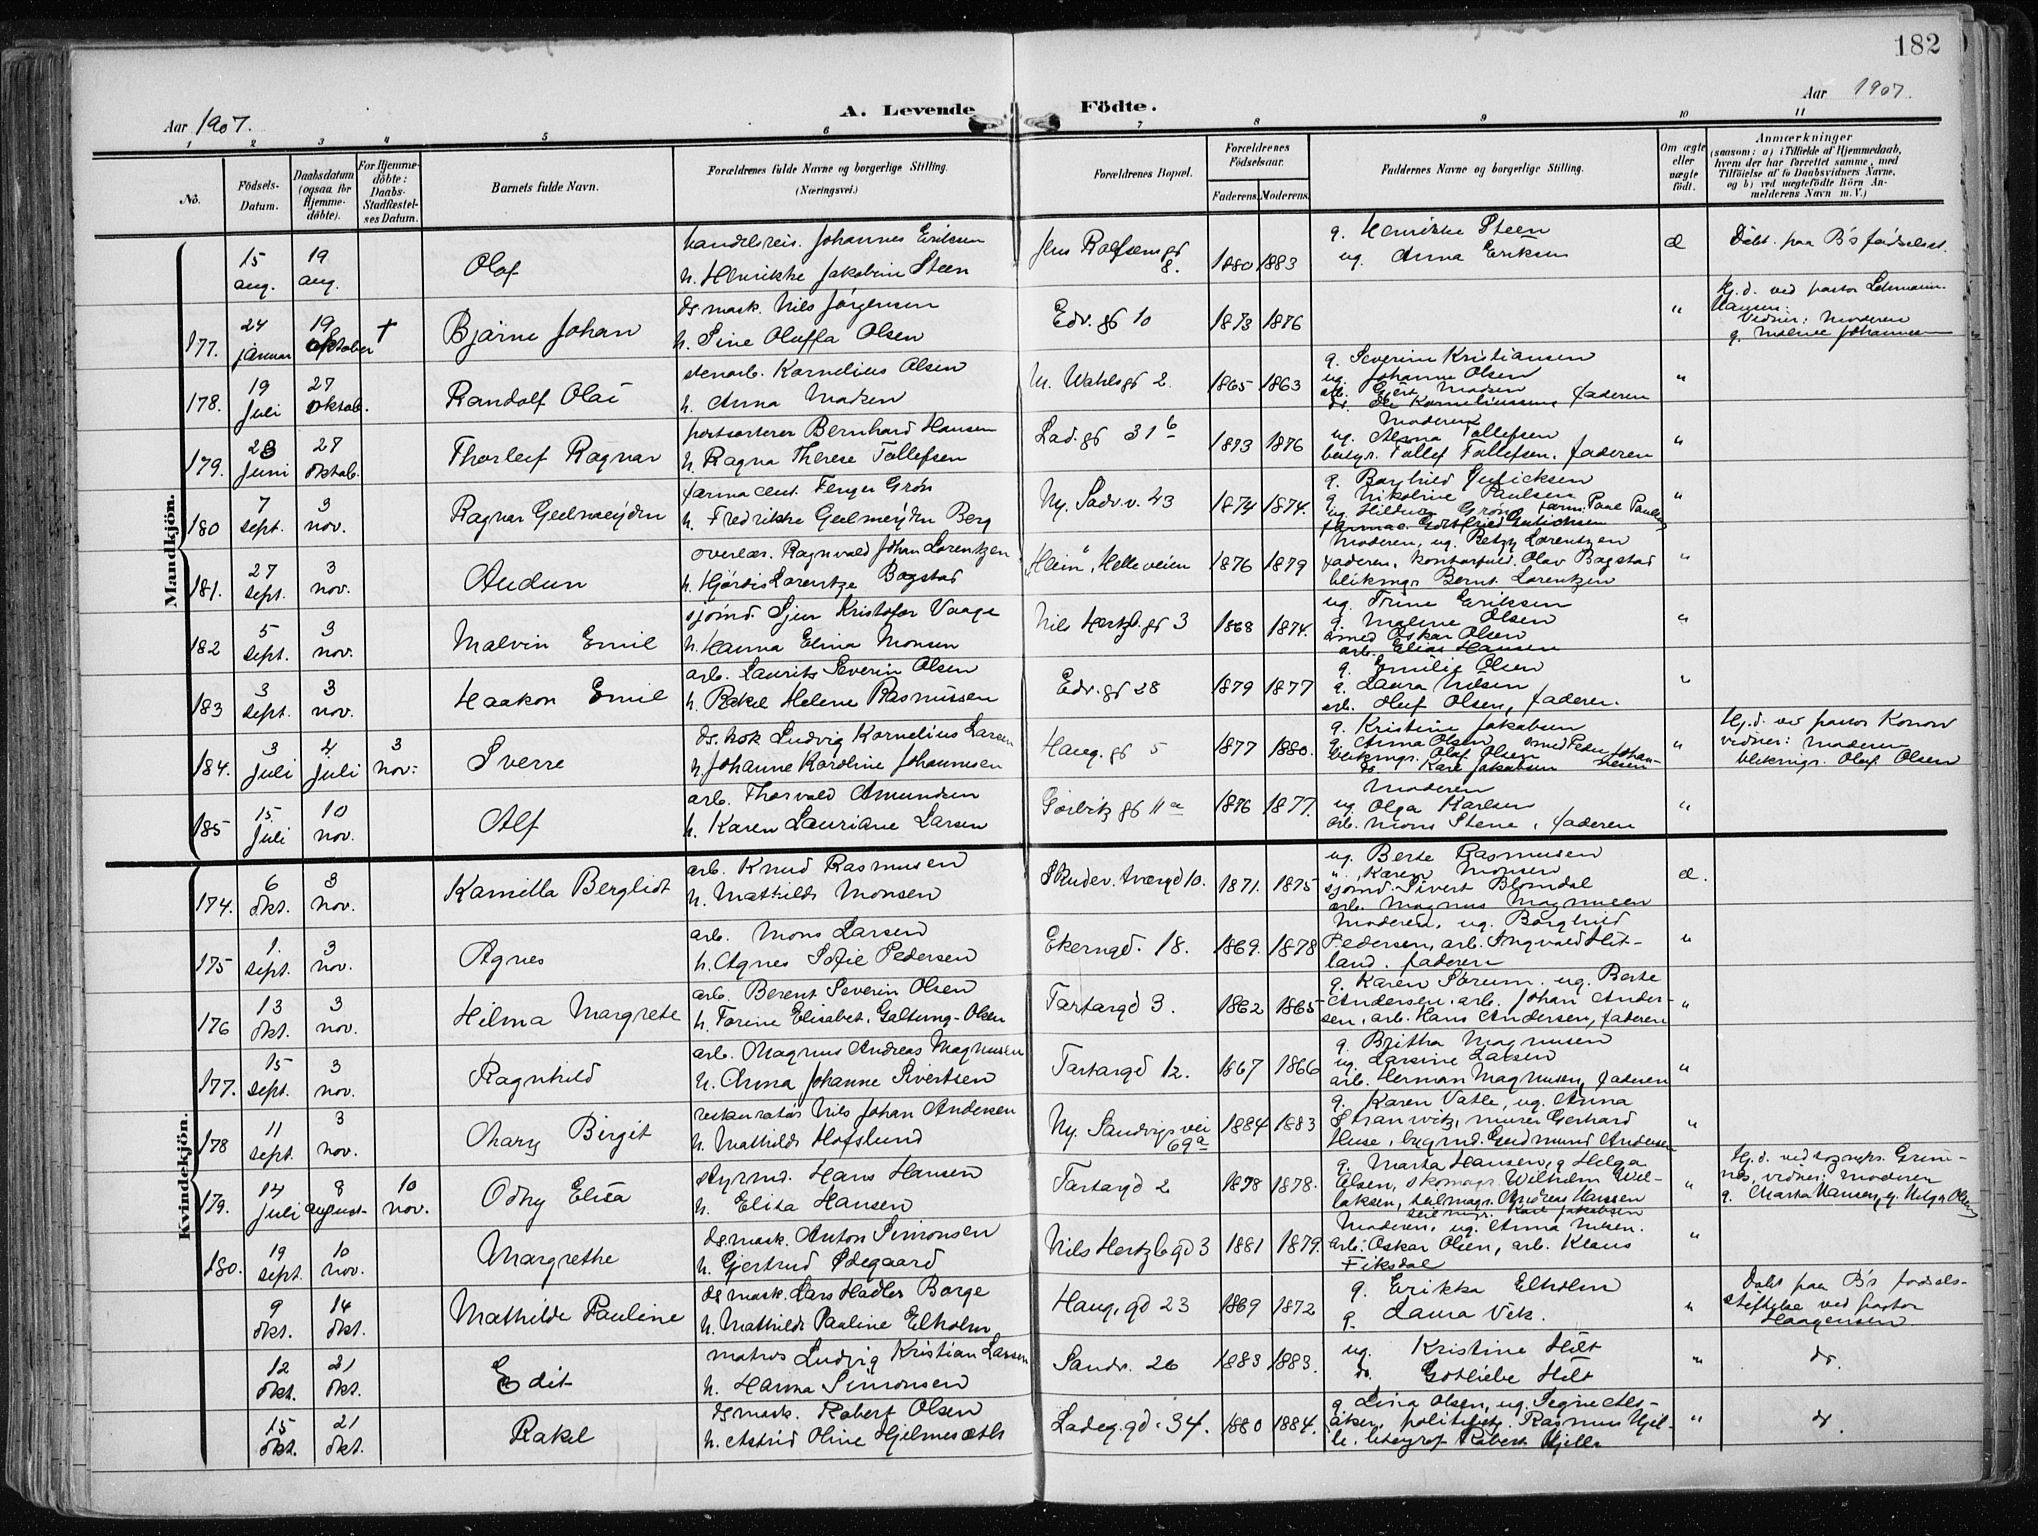 182
Aar 1907.
A. Levende Födte.
Aar 1907.
1 2 3 4 5 6 7 8 9 10 11
No.
Födsels-Datum.
Daabsdatum (ogsaa for Hjemmedöbte).
For Hjemmedöbte: Daabs-Stadfæstelses Datum.
Barnets fulde Navn.
Forældrenes fulde Navne og borgerlige Stilling. (Næringsvei.)
Forældrenes Bopæl.
Forældrenes Födselsaar.
Faderens. Moderens.
Faddernes Navne og borgerlige Stilling.
Om ægte eller uægte födt.
Anmærkninger (saasom: a) i Tilfælde af Hjemmedaab, hvem der har forrettet samme, med Tilföielse af to Daabsvidners Navne, og b) ved uægtefödte Börn Anmelderens Navn m. V.)
Mandkjön.
15 aug. 19 aug. Olaf
handelsreis. Johannes Eriksen
h. Henrikke Jakobine Steen
8. 1880 1883
g. Henrikke Steen
ug. Anna Eriksen
Döbt paa B's fødselsst.
177. 24 januar 19 oktober + Bjarne Johan
ds mask. Nils Jørgensen
h. Sine Oluffa Olsen
Edv. gd 10 1873 1876 "
Hj.d. ved pastor Lehmann-
Hansen.
Vidner: Moderen
g. Malene Johannesen
178. 19 Juli 27 oktob. Randolf Olai
stenarb. Kornelius Olsen
h. Anna Madsen
W. Wahlsgd 2. 1865 1863
g. Severine Kristiansen
ug. Johanne Olsen
arb. Gjert Madsen
Korneliussen, faderen
"
179. 23 Juni 27 oktob. Thorleif Ragnar
postsorterer Bernhard Hansen
h. Ragna Therese Tollefsen
Lad. gd 31 b 1873 1876
Moderen
ug. Anna Tollefsen
bestyr. Tollef Tollefsen, faderen
"
180 7 sept. 3 nov. Ragnar Geelmeyden
farmaceut. Fenger Grøn
h. Fredrikke Geelmeyden Berg
Ny. Sadv. v. 43 1874 1874.
g. Nikoline Paulsen
ug. Hildur Grøn, farm. Paal Paulsen
"
181. 27 sept. 3 nov. Audun
overlær. Ragnvald Johan Lorentzen
h. Hjørdis Lorentze Bogstad
"Heim", Helleveien 1876 1879
Moderen, ug. Betzy Lorentzen
faderen, kontorfuld. Olav Bogstad
blikmgr. Bernt Lorentzen
"
182 5 sept. 3 nov. Malvin Emil
sjømd. Sjur Kristofer Vaage
h. Hanna Elina Monsen
Nils Hertzb. gd 3 1868 1874.
ug. Trine Eriksen
g. Malene Olsen
smed Oskar Olsen
arb. Elias Hansen
"
183 3 sept. 3 nov. Haakon Emil
arb. Laurits Severin Olsen
h. Rakel Helene Rasmussen
Edv. gd 28 1879 1877
g. Emilie Olsen
g. Laura Nilsen
arb. Oluf Olsen, faderen.
"
184. 3 Juli 4 Juli 3 nov: Sverre
ds. kok Ludvig Kornelius Larsen
h. Johanne Karoline Johannesen
Haug. gd 5 1877 1880.
g. Kristine Jakobsen
g. Anna Olsen, smed Peder Johan-
blikmgr. Olaf Olsen nesen
ds Karl Jakobsen
"
Hj.d. ved pastor Konow
vidner: Moderen
blikmgr. Olaf Olsen
185 15 Juli 10 nov. Alf
arb. Thorvald Amundsen
h. Karen Lauriane Larsen
Gørbitz gd 11 a 1876 1877.
Moderen
ug. Olga Karlsen
arb. Mons Stene, faderen
"
Kvindekjön.
174. 6 okt. 3 nov. Kamilla Berglidt
arb. Knud Rasmusen
h. Mathilde Monsen
Skudev. tværgd 10. 1871. 1875
ug. Berte Rasmusen
". Karen Monsen
sjømd. Sivert Blomdal
arb. Magnus Magnusen
175 1. sept. 3 nov. Agnes
arb. Mons Larsen
h. Agnes Sofie Pedersen
Ekerngd. 18. 1869. 1878
Moderen, ug. Borghild
Pedersen, arb. Ingvald Het-
land. faderen
"
176 13 okt. 3 nov. Hilma Margrete
arb. Berent Severin Olsen
h. Torine Elisabet, Galtung-Olsen
Tartargd 3. 1862 1865
g. Karen Sørum, ug. Berte
Andersen, arb. Johan Ander-
sen, arb. Hans Andersen, faderen
"
177. 15 sept. 3 nov. Ragnhild
arb. Magnus Andreas Magnusen
h. Anna Johanne Sivertsen
Tartargd 12. 1867 1866
g. Britha Magnusen
ug. Larsine Larsen
arb. Herman Magnusen, faderen
"
178 11 sept. 3 nov. Mary Birgit
Nils Johan Andersen
h. Mathilde Hofslund
Ny. Sandvigsvei 69 a 1884 1883
g. Karen Vatle, ug. Anna
Stranwitz, murer Gerhard
Huse, bygmd. Gudmund Andersen
"
179. 14 Juli 8 august 10 nov. Odny Elisa
styrmd. Hans Hansen
h. Elisa Hansen
Tartargd 2 1878 1878.
g. Marta Hansen, g Helga
Olsen, skomagr. Wilhelm Wil-
laksen, seilmagr. Andreas Hanssen
seilmgr. Karl Jakobsen
"
Hj.d. ved sognepr. Grim-
nes, vidner: Moderen
g. Marta Hansen, g. Helga Olsen
180. 19 sept. 10 nov. Margrethe
ds mask. Anton Simonsen
h. Gjertrud Ødegaard
Nils Hertzb gd 3 1881 1879.
Moderen, ug. Anna Nilsen.
arb. Oskar Olsen, arb. Klaus
Fiksdal
"
9 okt. 14 okt. Mathilde Pauline
ds mask. Lars Hadler Borge
h. Mathilde Pauline Elholm
Haug, gd 23 1869 1872
g. Erikka Elholm
g. Laura Vik.
"
Döbt paa B's fødsels-
stiftelse ved pastor
Haagensen
12 okt. 21 okt. Edit
matros Ludvig Kristian Larsen
h. Hanna Simonsen
Sandv. 26 1883 1883.
ug. Kristine Hilt
ds. Gotliebe Hilt
" ds.
15 okt. 21 okt. Rakel
ds mask. Robert Olsen
h. Astrid Oline Hjelmesæth
Ladeg. gd. 34. 1880 1884.
g. Lina Olsen, ug. Signe Als-
aker, politibetj. Rasmus Hjel-
le, litograf Robert Hjelle
" ds